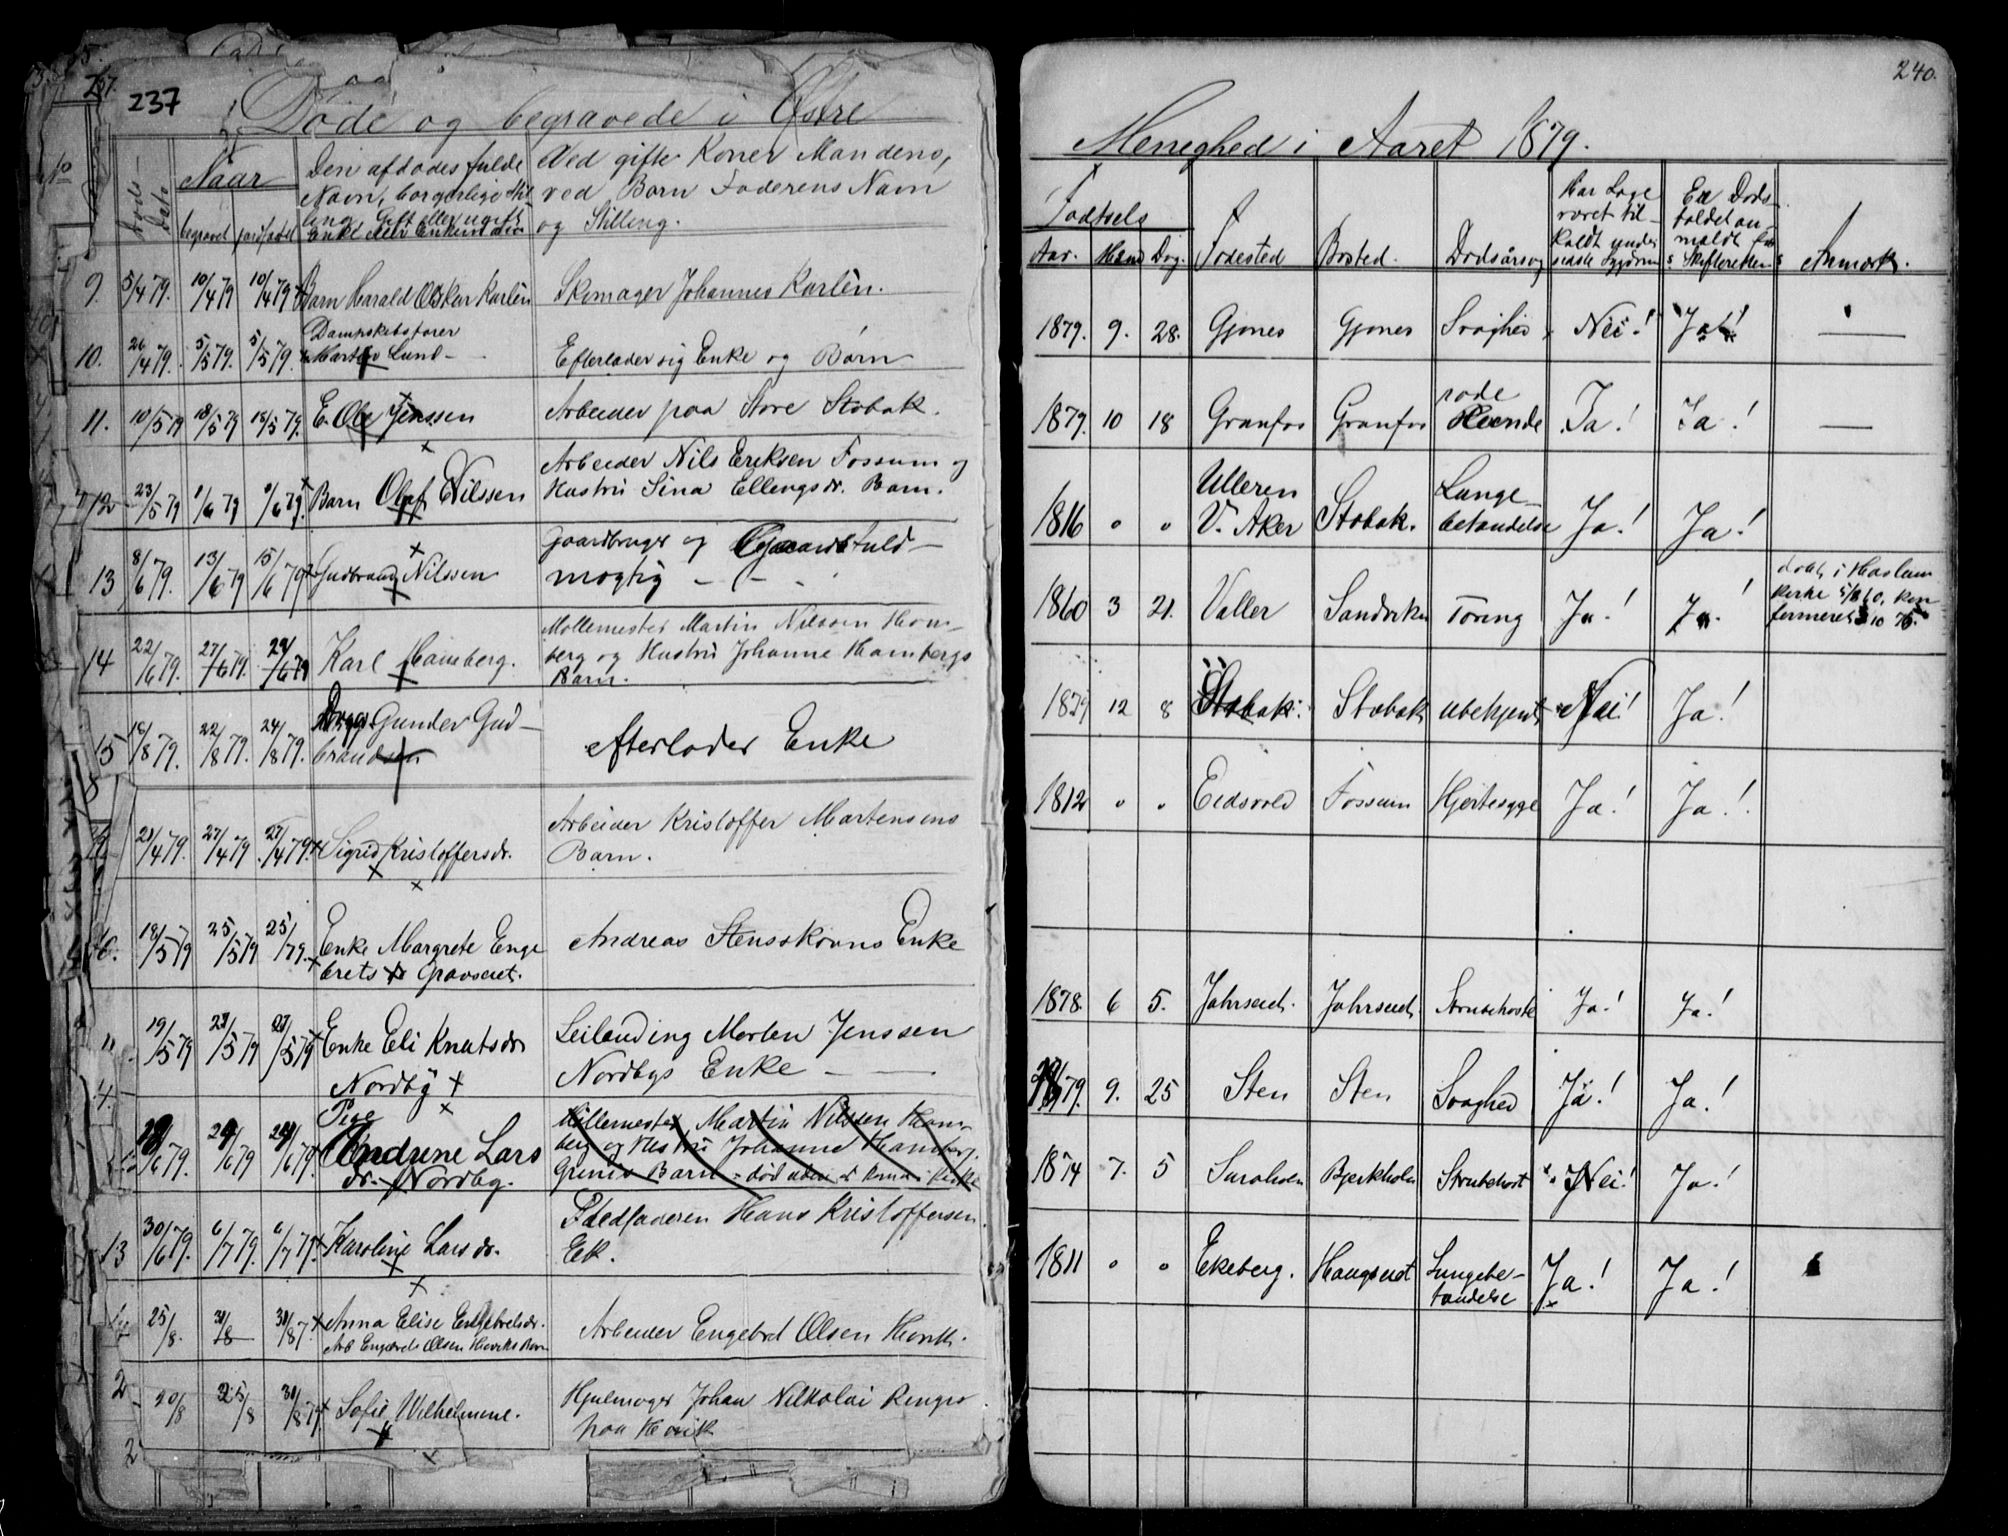 237
Døde og begravede i Østre
No
Døds-
Dato
Naar
begravet
jordfæstet
Den afdødes fulde
Navn, borgerlige Stil-
ling, Gift eller ugift
Enke eller Enkemand
Ved gifte Koner Mandens,
ved Børn Faderens Navn
og Stilling.
9. 5/4 79. 10/4 79 10/4 79 Barn Harald Oskar Karlèn Skomager Johannes Karlèn.
10. 26/4 79. 5/5 79. 5/5 79. Dampskibsfører
Lund - Efterlader sig Enke og Børn
11. 10/5 79 18/5 79 18/5 79. E. Ole Jenssen Arbeider paa Store Stabæk.
12 23/5 79 1/6 79 1/6 79. Barn Olaf Nilssen Arbeider Nils Eriksen Fossum og
Hustru Sina Ellingsdr. Barn.
13 8/6 79. 13/6 79 15/6 79 Gudbrand Nilssen Gaardbruger og Gaardsfuld-
mægtig - -
14 22/6 79. 27/6 79. 29/6 79 Karl Hamberg. Møllemester Martin Nilssen Ham-
berg og Hustru Johanne Hambergs
Barn.
15 18/8 79. 22/8 79. 24/8 79. Gunder Gud-
brandsen efterlader Enke
21/4 79. 27/4 79 27/4 79. Sigrid Kristoffersdr. Arbeider Kristoffer Martensens
Barn.
18/5 79 25/5 79 25/ 79. Enke Margrete Enge
brets dr Gravseiet. Andreas Stensskovns Enke
19/5 79 23/5 79 27/5 79 Enke Eli Knutsdr
Nordby Leilending Morten Jenssen
Nordbys Enke -
6 79. 29/6 79 29/6 79. Pige
Andrine Lars
dr. Nordby. Møllemester Martin Nilssen Ham-
berg og Hustru Johanne Hamberg.
Grinis Barn - død
13 30/6 79. 6/7 79. 6/7 79 Karoline Larsdr. Fledføderen Hans Kristoffersen
Eek.
25/8. 31/8 31/8 7. Anna Elise Engebretsdr.
Arb Engebrets Olsen Høviks Barn Arbeider Engebret Olsen Høvik.
20/8 25/8 31/8 79 Sofie Wilhelmine. Hjulmager Johan Nilkolai Ringer
paa Høvik
240.
Menighed i Aaret 1879.
Fødsels
Aar. Maaned Dag. Fødested Bosted. Dødsårsag
Har Læge
været til-
kaldt under
sidste Sygdom
Er Døds
faldet an
meldt for
Skifteretten
Anmærk.
1879. 9. 28. Gjønes Gjønes Svaghed Nei! Ja!
1879. 10 18 Granfos Granfos røde
Hunde Ja! Ja!
1816 " " Ulleren
V. Aker Stabæk. Lunge-
betændelse Ja! Ja!
1860 3 21. Valler Sandviken Tæring Ja! Ja! døbt i Haslum
Kirke 5/8 60, kon
firmeret 3/10 75.
1879 12 8 Stabæk. Stabæk ubekjent Nei! Ja!
1812 " " Eidsvold Fossum Hjertesyge Ja! Ja!
1878. 6 5. Jahrseiet. Jahrseiet Strubehoste Ja! Ja!
1879. 9. 25 Sten Sten Svaghed Ja! Ja!
1874 7. 5 Saraholm Bjerkholm Strubehost Nei! Ja!
1811 " " Ekeberg. Haugseiet Lungebe-
tændelse Ja! Ja!